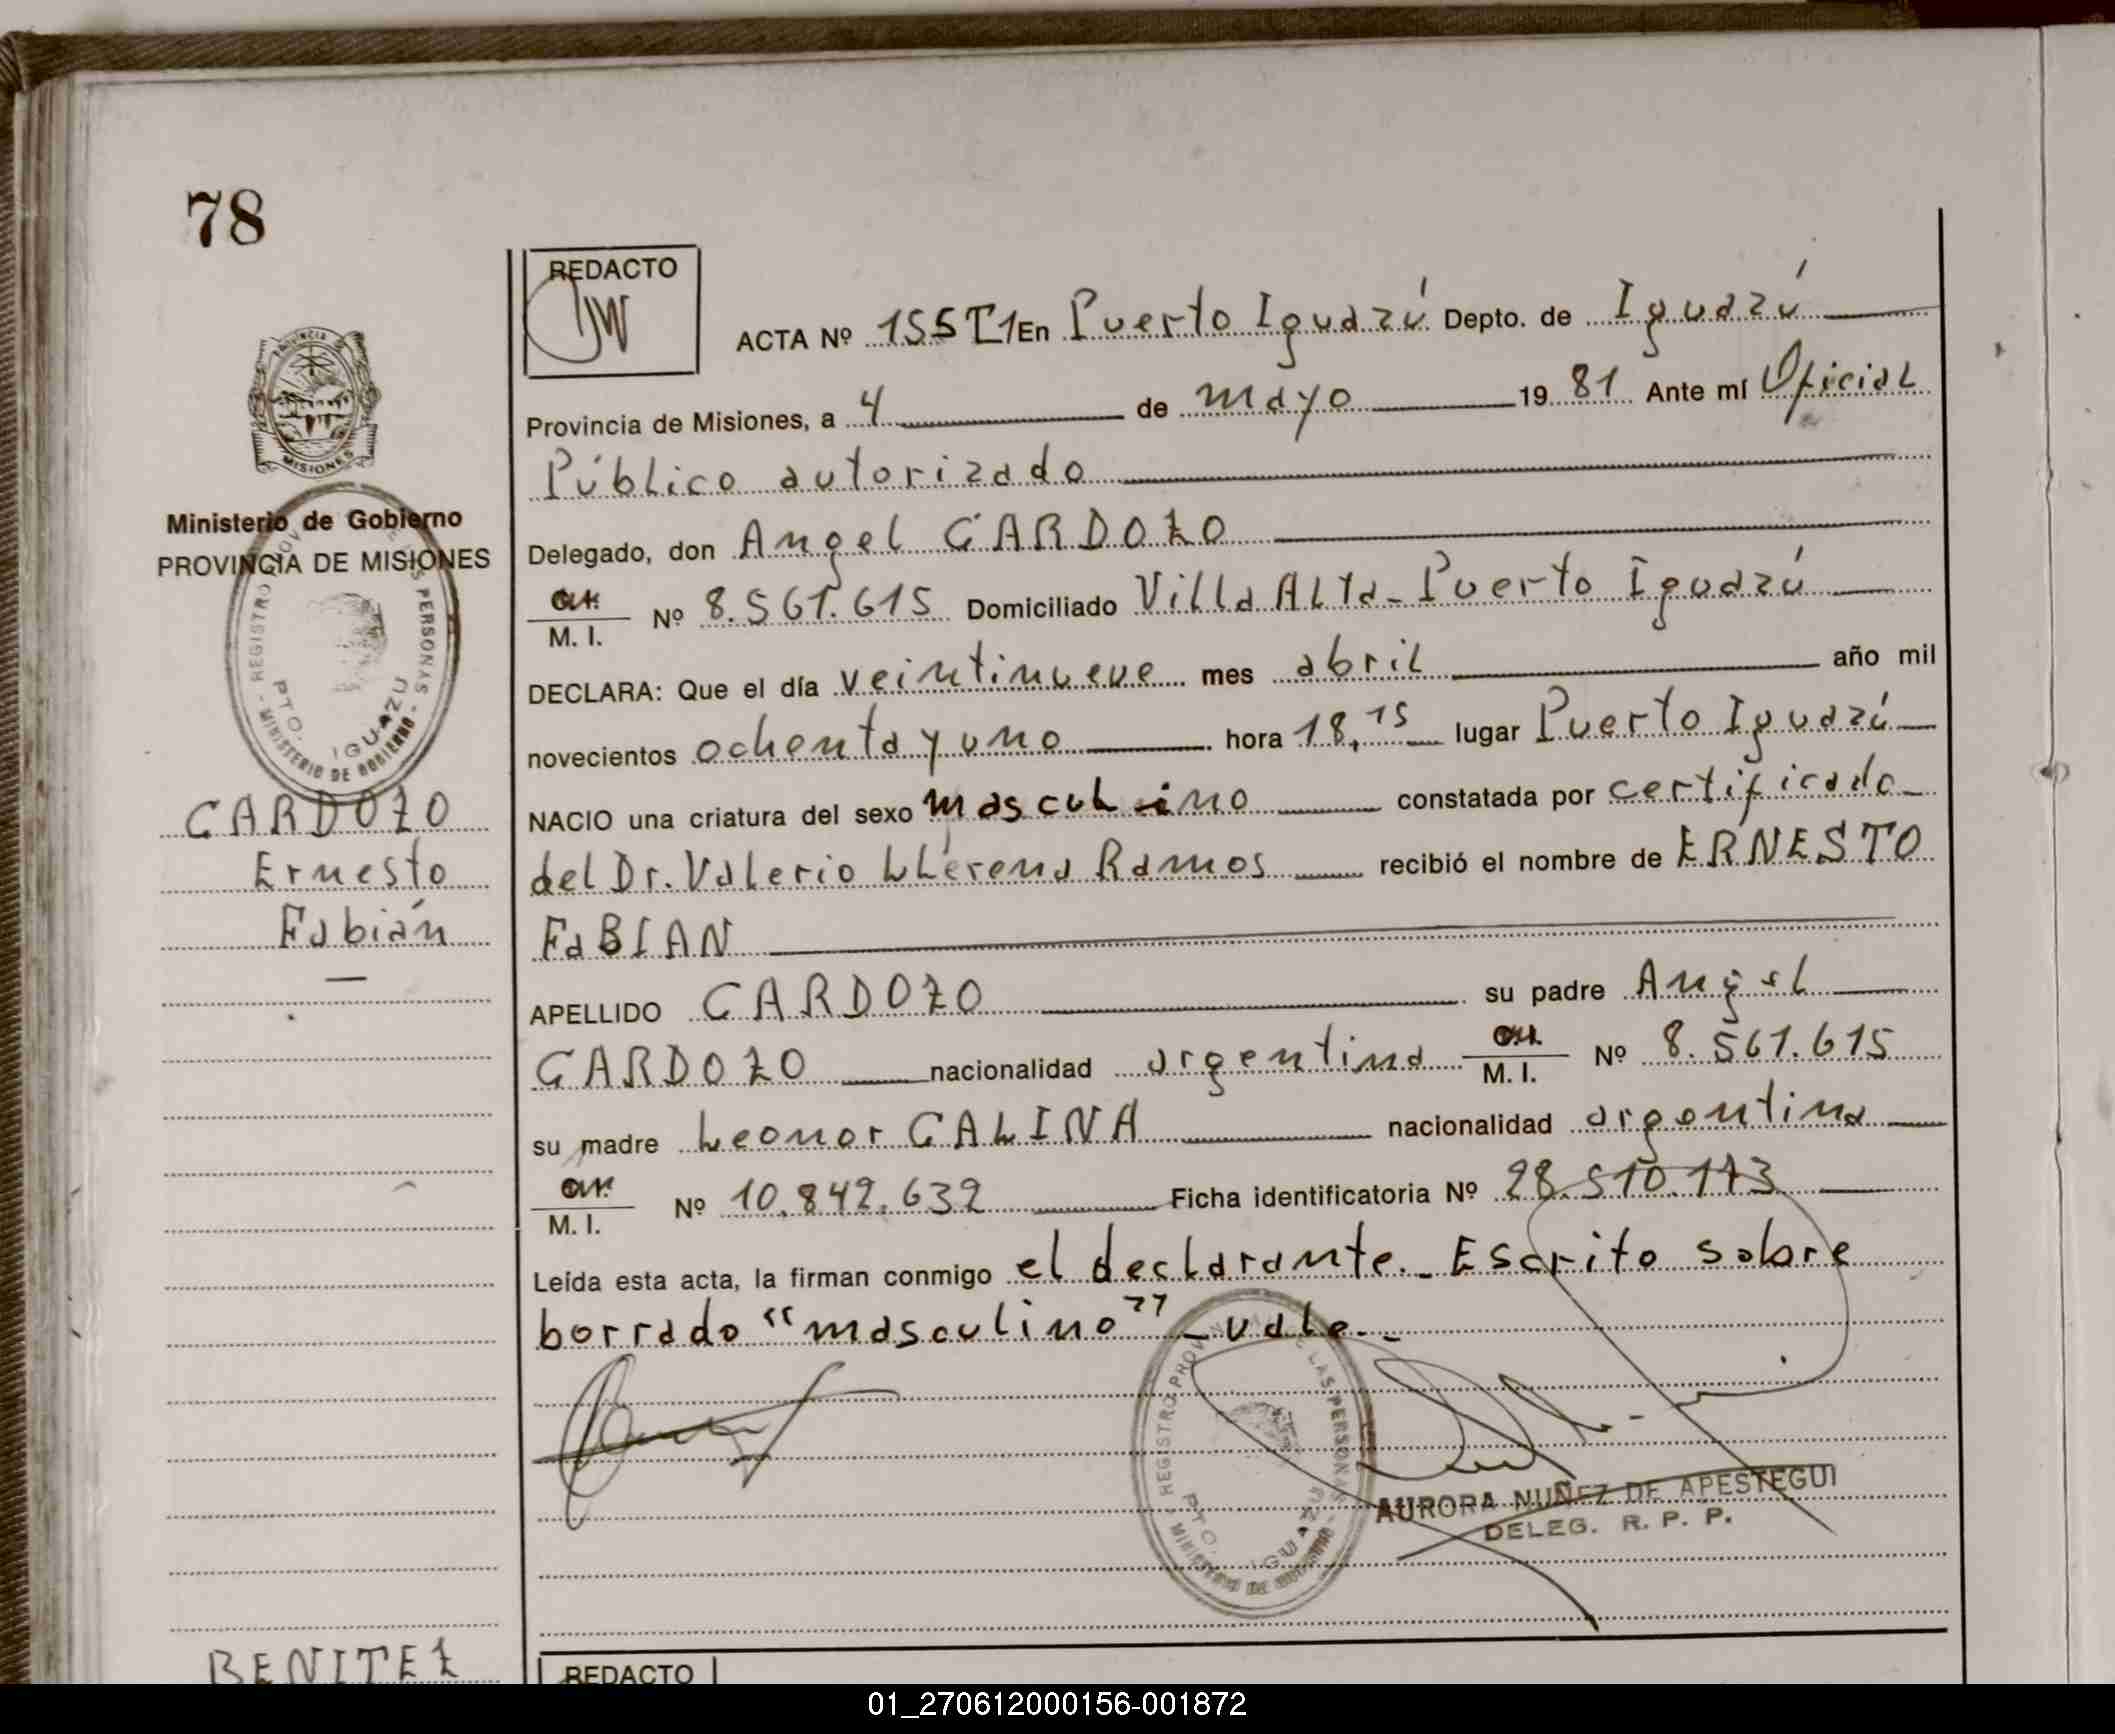 78
REDACTO
ACTA Nº 155 T1 En Puerto Iguazú Depto. de Iguazú
Provincia de Misiones, a 4 de mayo 1981 Ante mí Oficial
Público autorizado
Delegado, don Angel CARDOZO
M. I. Nº 8.561.615 Domiciliado Villa Alta - Puerto Iguazú
DECLARA: Que el día veintinueve mes abril año mil
novecientos ochenta y uno hora 18,15 lugar Puerto Iguazú
NACIO una criatura del sexo masculino constatada por certificado
del Dr. Valerio Llerena Ramos recibió el nombre de ERNESTO
FaBIAN
APELLIDO CARDOZO su padre Angel
CARDOZO nacionalidad argentina M. I. Nº 8.561.615
su madre Leonor GALINA nacionalidad argentina
M. I. Nº 10.842.632 Ficha identificatoria Nº 28.510.173
Leída esta acta, la firman conmigo el declarante.- Escrito sobre
borrado "masculino" - vale.-
REGISTRO PROVINCIAL DE LAS PERSONAS
PTO. IGUAZU
MINISTERIO DE GOBIERNO
AURORA NUÑEZ DE APESTEGUI
DELEG. R. P. P.
PROVINCIA
MISIONES
Ministerio de Gobierno
PROVINCIA DE MISIONES
REGISTRO PERSONAS
PTO. IGUAZU
MINISTERIO DE GOBIERNO
CARDOZO
Ernesto
Fabián
BENITEZ
REDACTO
01_270612000156-001872